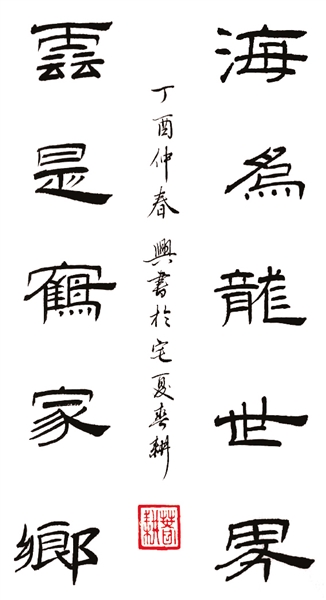 海為龍世界
雲是鶴家鄉
丁酉仲春 興書於宅夏春耕
春耕